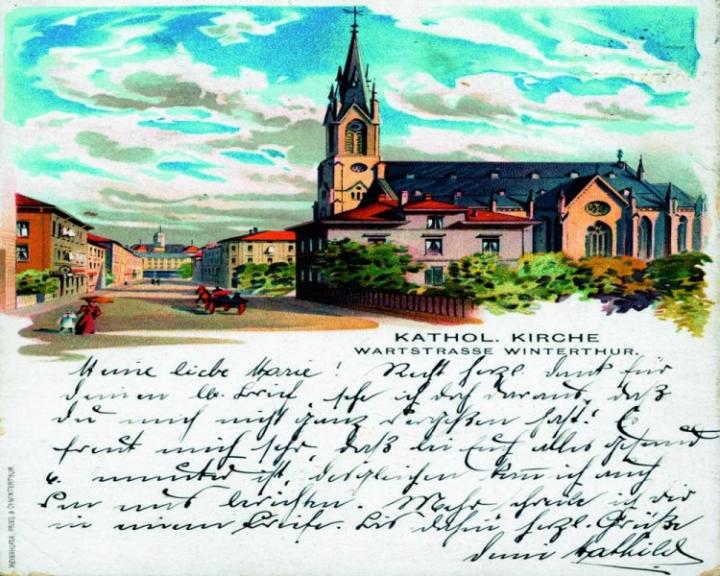 KATHOL. KIRCHE
WARTSTRASSE WINTERTHUR.
Meine liebe Marie! Recht herzl. Dank für
deinen lb. Brief, sehe ich doch daraus, daß
du mich nicht ganz vergeßen hast! Es
freut mich sehr, daß bei Euch alles gesund
u. munter ist, desgleichen kann ich auch
von uns berichten. Mehr schreibe ich dir
in einem Briefe. Bis dahin herzl. Grüße
deine Mathild